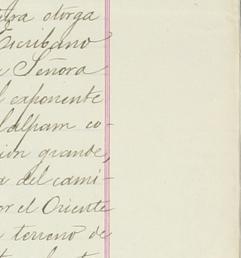 otorga
Escribano
Señora
l exponente
lalpam co-
ión grande,
a del cami-
or el Oriente
terreno de